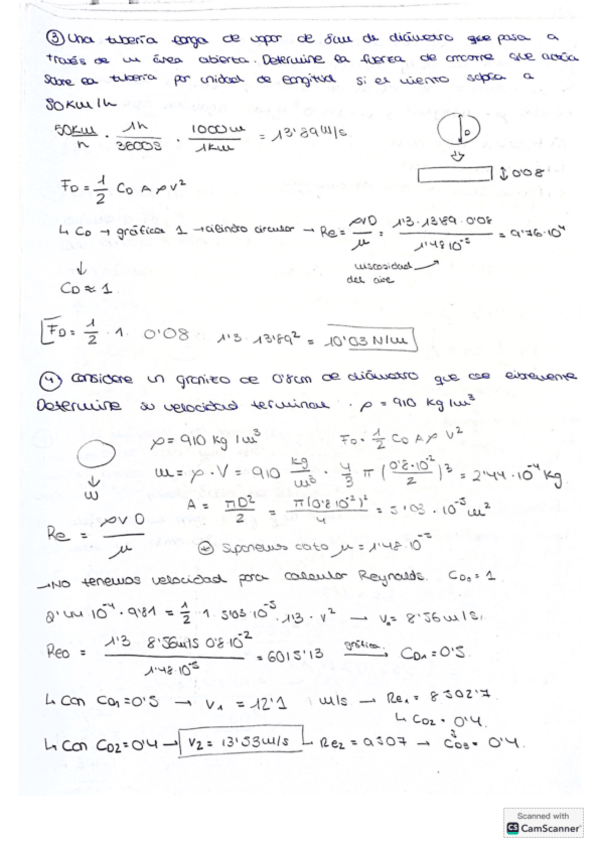 ③ Una tubería larga de vapor de 8cm de diámetro que pasa a
través de un área abierta. Determine la fuerza de arrastre que actúa
sobre la tubería por unidad de longitud si el viento sopla a
50 km/h
50 km/h · 1h/3600s · 1000m/1km = 13'89 m/s
D
↕ 0'08
F_D = 1/2 C_D A ρ v²
↳ C_D → gráfica 1 → cilindro circular → Re = ρVD/μ = 1'3 · 13'89 · 0'08 / 1'48·10⁻⁵ = 9'76·10⁴
viscosidad
del aire
↓
C_D ≈ 1
F_D = 1/2 · 1 · 0'08 · 1'3 · 13'89² = 10'03 N/m
④ Considere un granito de 0'8cm de diámetro que cae
Determine su velocidad terminal. ρ = 910 kg/m³
ρ = 910 kg/m³ F_D = 1/2 C_D A ρ V²
m = ρ · V = 910 kg/m³ · 4/3 π (0'8·10⁻²/2)³ = 2'44·10⁻⁴ kg
↓
W
A = πD²/2 = π(0'8·10⁻²)²/4 = 5'03·10⁻⁵ m²
Re = ρVD/μ
μ = 1'48·10⁻⁵
→ No tenemos velocidad para calcular Reynolds. C_D0 = 1
2'44·10⁻⁴ · 9'81 = 1/2 · 1 · 5'03·10⁻⁵ · 1'3 · v² → v₀ = 8'56 m/s
Re0 = 1'3 8'56m/s 0'8·10⁻² / 1'48·10⁻⁵ = 6015'13 gráfica → C_D1 = 0'5
↳ Con C_D1 = 0'5 → v₁ = 12'1 m/s → Re₁ = 8502'7
↳ C_D2 = 0'4
↳ Con C_D2 = 0'4 → v₂ = 13'53 m/s ↳ Re₂ = 9507 → C_D3 = 0'4
Scanned with
CS CamScanner